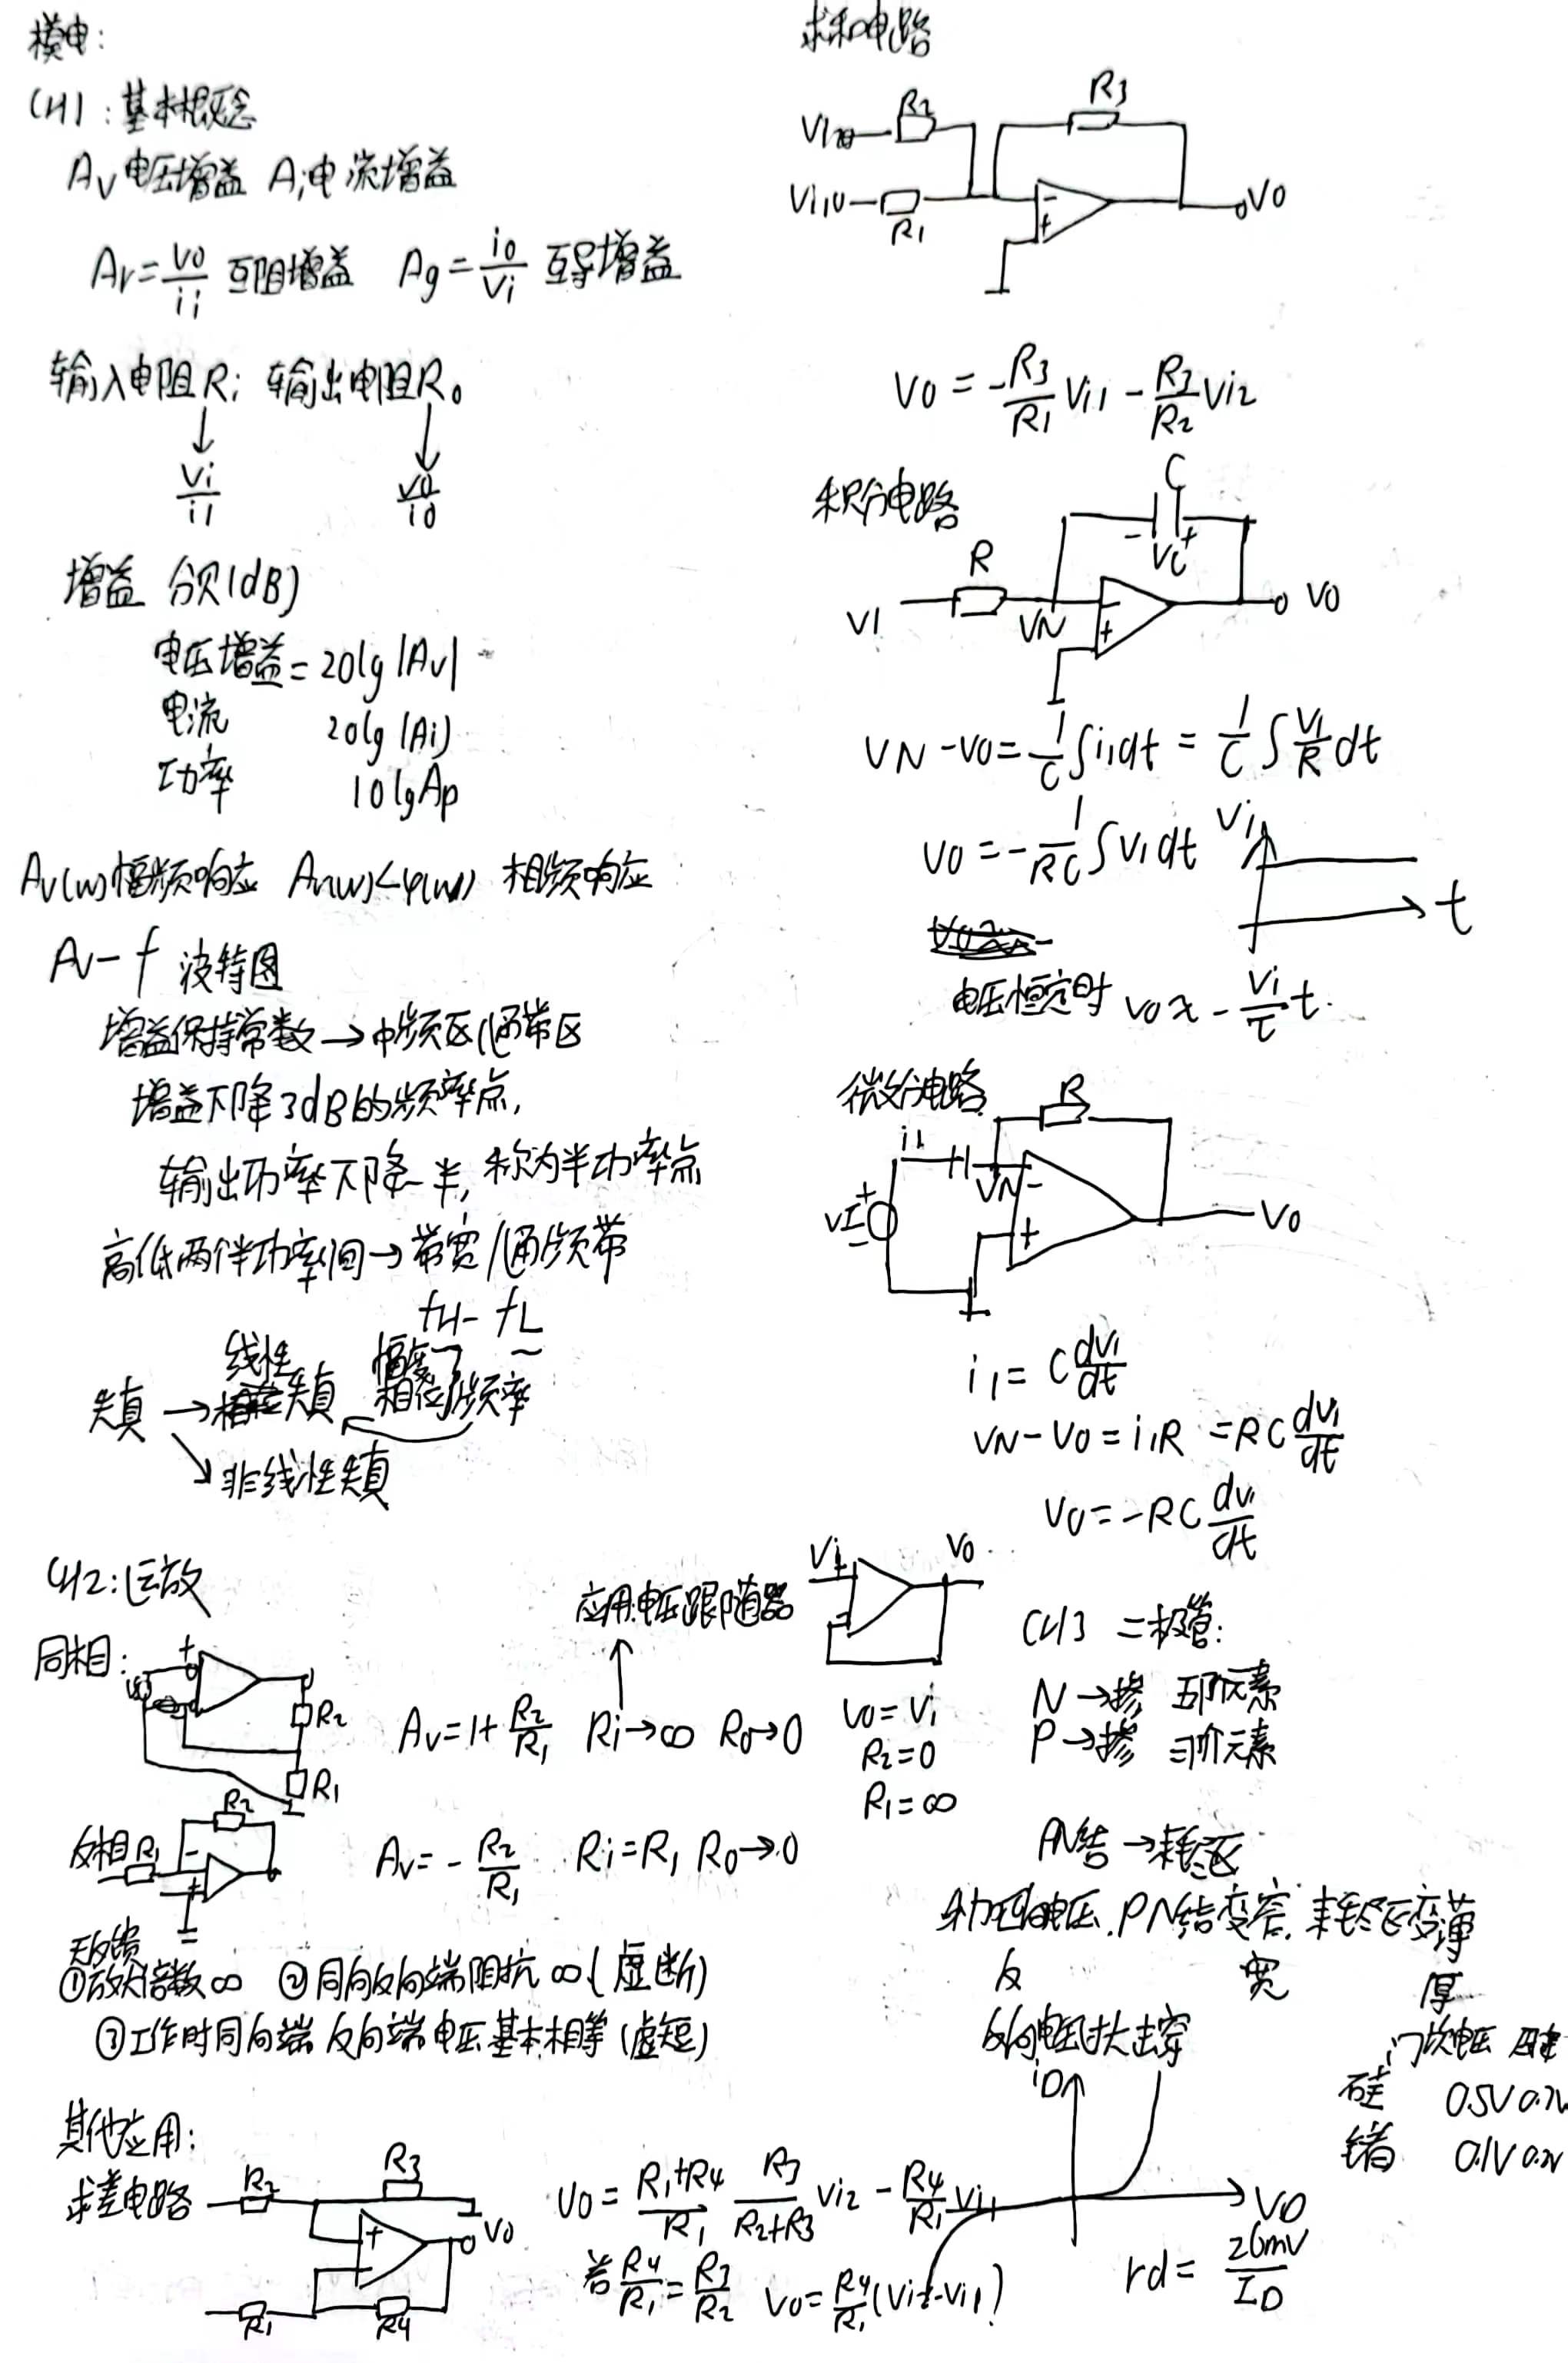 模电:
CH1:基本概念
Av电压增益 Ai电流增益
Ar=vo/ii 互阻增益 Ag=io/vi 互导增益
输入电阻Ri 输出电阻Ro
↓ ↓
vi/ii vo/io
增益 分贝(dB)
电压增益=20lg|Av|
电流 20lg|Ai|
功率 10lgAp
Av(w)幅频响应 Av(w)∠φ(w) 相频响应
Av-f 波特图
增益保持常数→中频区/通带区
增益下降3dB的频率点,
输出功率下降一半,称为半功率点
高低两个半功率间→带宽/通频带
fH-fL
线性 幅度
失真→失真 相位 频率
非线性失真
CH2:运放
同相: + R2 R1
Av=1+R2/R1 Ri→∞ Ro→0
应用:电压跟随器
Vi Vo
vo=vi
R2=0
R1=∞
反相 R1 R2 - +
Av=-R2/R1 Ri=R1 Ro→0
无反馈
①放大倍数∞ ②同向反向端阻抗∞(虚断)
③工作时同向端反向端电压基本相等(虚短)
其他应用:
求差电路 R2 R3 + - R1 R4 Vo
Vo=(R1+R4)/R1 R3/(R2+R3) vi2-R4/R1 vi1
若R4/R1=R3/R2 Vo=R4/R1(vi2-vi1)
求和电路
Vi2 R2 R3
Vi1 R1 - + Vo
Vo=-R3/R1 Vi1-R3/R2 Vi2
积分电路
C - Vc +
VI R VN - + VO
VN-VO=1/C∫i1dt=1/C∫VI/R dt
VO=-1/RC∫VIdt Vi t
电压恒定时 vo≈-Vi/τ t
微分电路
R i1 VN - + VI + - Vo
i1=C dVI/dt
VN-VO=i1R=RC dVI/dt
VO=-RC dVI/dt
CH3 二极管:
N→掺 五价元素
P→掺 三价元素
PN结→耗尽区
加正向电压.PN结变窄.耗尽区变薄
反 宽 厚
反向电压过大击穿
门坎电压
硅 0.5V 0.7V
锗 0.1V 0.2V
iD VD
rd=26mV/ID